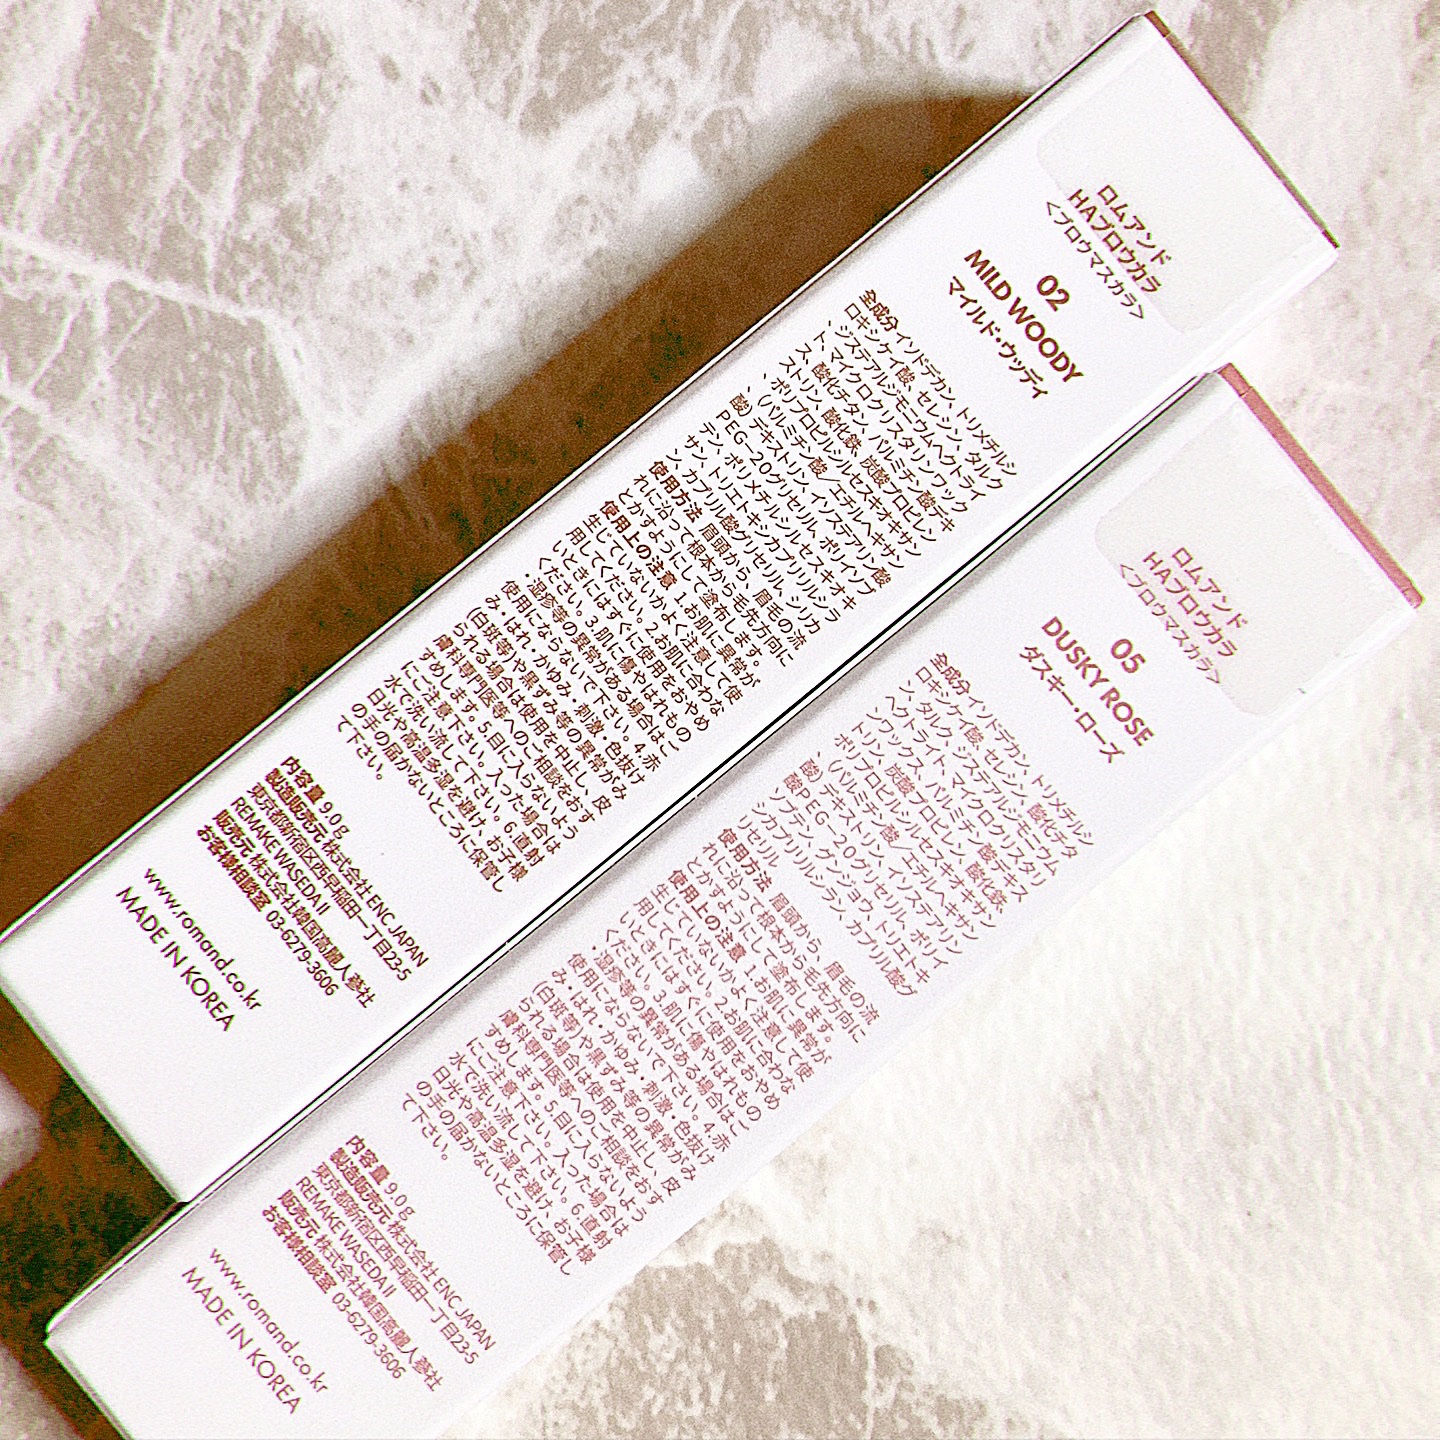 ロムアンド
HAブロウカラ
<ブロウマスカラ>
02
MILD WOODY
マイルド・ウッディ
全成分 イソドデカン、トリメチルシ
ロキシケイ酸、セレシン、タルク
、ジステアルジモニウムヘクトライ
ト、マイクロクリスタリンワック
ス、酸化チタン、パルミチン酸デキ
ストリン、酸化鉄、炭酸プロピレン
、ポリプロピルシルセスキオキサン
、(パルミチン酸/エチルヘキサン
酸)デキストリン、イソステアリン酸
PEG-20グリセリル、ポリイソブ
テン、ポリメチルシルセスキオキ
サン、トリエトキシカプリリルシラ
ン、カプリル酸グリセリル、シリカ
使用方法 眉頭から、眉毛の流
れに沿って根本から毛先方向に
とかすようにして塗布します。
使用上の注意 1.お肌に異常が
生じていないかよく注意して使
用してください。2.お肌に合わな
いときにはすぐに使用をおやめ
ください。3.肌に傷やはれもの
・湿疹等の異常がある場合はご
使用にならないで下さい。4.赤
み・はれ・かゆみ・刺激・色抜け
(白斑等)や黒ずみ等の異常がみ
られる場合は使用を中止し、皮
膚科専門医等へのご相談をおす
すめします。5.目に入らないよう
にご注意下さい。入った場合は
水で洗い流して下さい。6.直射
日光や高温多湿を避け、お子様
の手の届かないところに保管し
て下さい。
内容量 9.0g
製造販売元 株式会社 ENC JAPAN
東京都新宿区西早稲田一丁目23-5
REMAKE WASEDA II
販売元 株式会社韓国高麗人蔘社
お客様相談室 03-6279-3606
www.romand.co.kr
MADE IN KOREA
ロムアンド
HAブロウカラ
<ブロウマスカラ>
05
DUSKY ROSE
ダスキー・ローズ
全成分 イソドデカン、トリメチルシ
ロキシケイ酸、セレシン、酸化チタ
ン、タルク、ジステアルジモニウム
ヘクトライト、マイクロクリスタリ
ンワックス、パルミチン酸デキス
トリン、炭酸プロピレン、酸化鉄、
ポリプロピルシルセスキオキサン
、(パルミチン酸/エチルヘキサン
酸)デキストリン、イソステアリン
酸PEG-20グリセリル、ポリイ
ソブテン、グンジョウ、トリエトキ
シカプリリルシラン、カプリル酸グ
リセリル
使用方法 眉頭から、眉毛の流
れに沿って根本から毛先方向に
とかすようにして塗布します。
使用上の注意 1.お肌に異常が
生じていないかよく注意して使
用してください。2.お肌に合わな
いときにはすぐに使用をおやめ
ください。3.肌に傷やはれもの
・湿疹等の異常がある場合はご
使用にならないで下さい。4.赤
み・はれ・かゆみ・刺激・色抜け
(白斑等)や黒ずみ等の異常がみ
られる場合は使用を中止し、皮
膚科専門医等へのご相談をおす
すめします。5.目に入らないよう
にご注意下さい。入った場合は
水で洗い流して下さい。6.直射
日光や高温多湿を避け、お子様
の手の届かないところに保管し
て下さい。
内容量 9.0g
製造販売元 株式会社 ENC JAPAN
東京都新宿区西早稲田一丁目23-5
REMAKE WASEDA II
販売元 株式会社韓国高麗人蔘社
お客様相談室 03-6279-3606
www.romand.co.kr
MADE IN KOREA